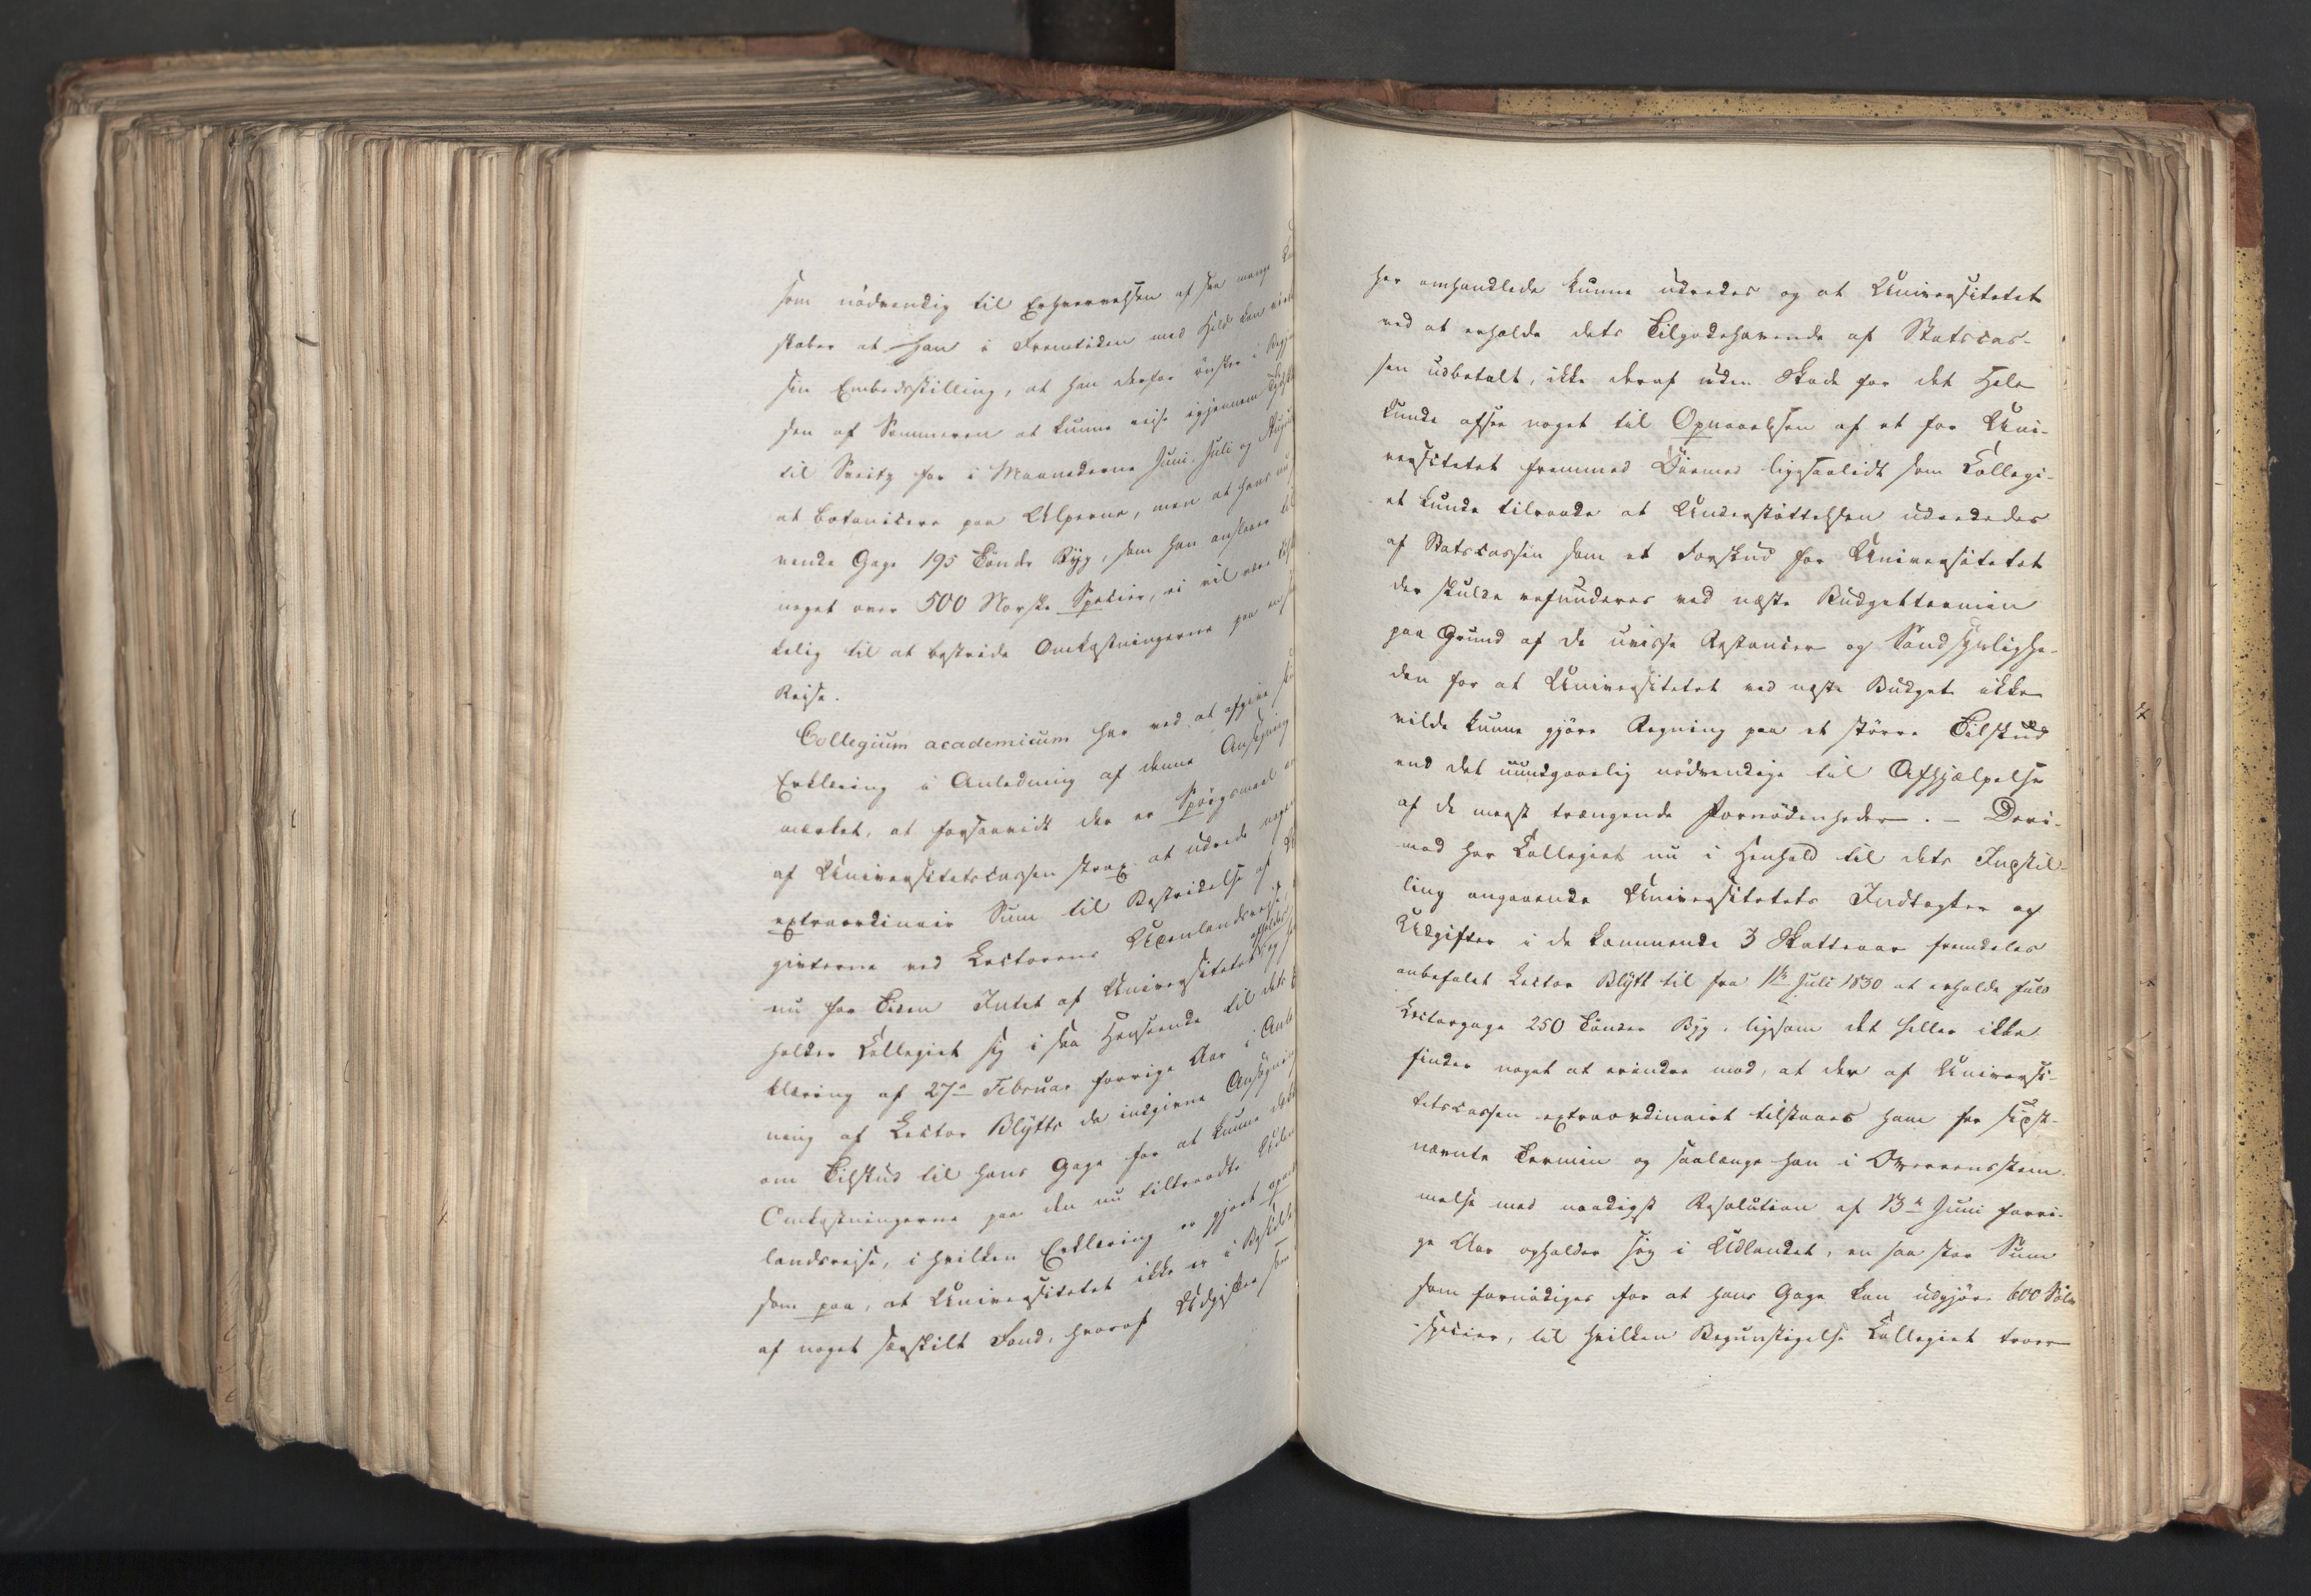 som nödvendig til Erhvervelsen af saa mange
skaber at han i Fremtiden med Held kan
sin Embedsstilling, at han derfor ønsker i
sen af Sommeren at kunne reise igjennem
til Sveitz for i Maanederne Juni, Juli og August
at botanicere paa Alperne, men at hans
rende Gage 195 Tönder Byg, som han anslaaer til
noget over 500 Norske Species, ei vil være
kelig til at bestride Omkostningerne paa en
Reise.
Collegium academicum har ved at afgive
Erklæring i Anledning af denne Ansøgning
mærket, at forsaavidt der er Spørgsmaal om
af Universitetscassen strax at udrede nogen
extraordinair Sum til Bestridelse af
gifterne ved Lectorens Udenlandsreise,
nu for Tiden Intet af Universitetet
holder Collegiet sig i saa Henseende til dets
klæring af 27de Februar forrige Aar i
ning af Lector Blytts da indgivne Ansøgning
om Tilskud til hans Gage for at kunne
Omkostningerne paa den nu tiltraadte
landsreise, i hvilken Erklæring er gjort
som paa, at Universitetet ikke er i Besiddelse
af noget særskilt Fond, hvoraf Udgifter som
her omhandlede kunne udredes og at Universitetet
ved at erholde dets Tilgodehavende af Statscas-
sen udbetalt, ikke deraf uden Skade for det Hele
kunde afsee noget til Opnaaelsen af et for Uni-
versitetet fremmed Öiemed ligesaalidt som Collegi-
et kunde tilraade at Understöttelsen udrededes
af Statscassen som et Forskud for Universitetet
der skulde refunderes ved næste Budgettermin
paa Grund af de uvisse Restancer og Sandsynlighe-
den for at Universitetet ved næste Budget ikke
vilde kunne gjöre Regning paa et större Tilskud
end det uundgaaelig nödvendige til Afhjælpelse
af de meest trængende Fornödenheder. – Deri-
mod har Collegiet nu i Henhold til dets Indstil-
ling angaaende Universitetets Indtægter og
Udgifter i de kommende 3 Skatteaar fremdeles
anbefalet Lector Blytt til fra 1ste Juli 1830 at erholde fuld
Lectorgage 250 Tönder Byg, ligesom det heller ikke
finder noget at erindre mod, at der af Universi-
tetscassen extraordinairt tilstaaes ham for sidst-
nævnte Termin og saalænge han i Overeensstem-
melse med naadigst Resolution af 13de Juni forri-
ge Aar opholder sig i Udlandet, en saa stor Sum
som fornödiges for at hans Gage kan udgjöre 600 Sölv
species, til hvilken Begunstigelse Collegiet troer